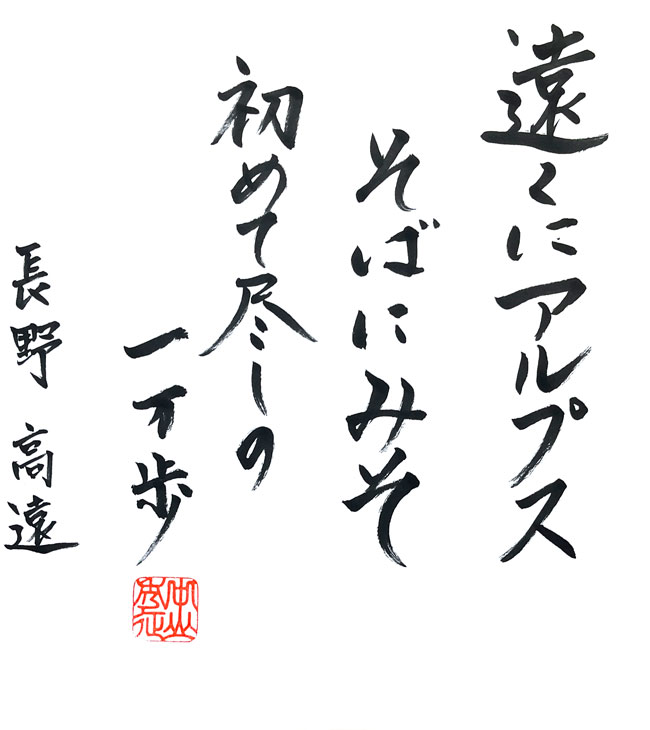 遠くにアルプス
そばにみそ
初めて尽しの
一万歩
長野 高遠